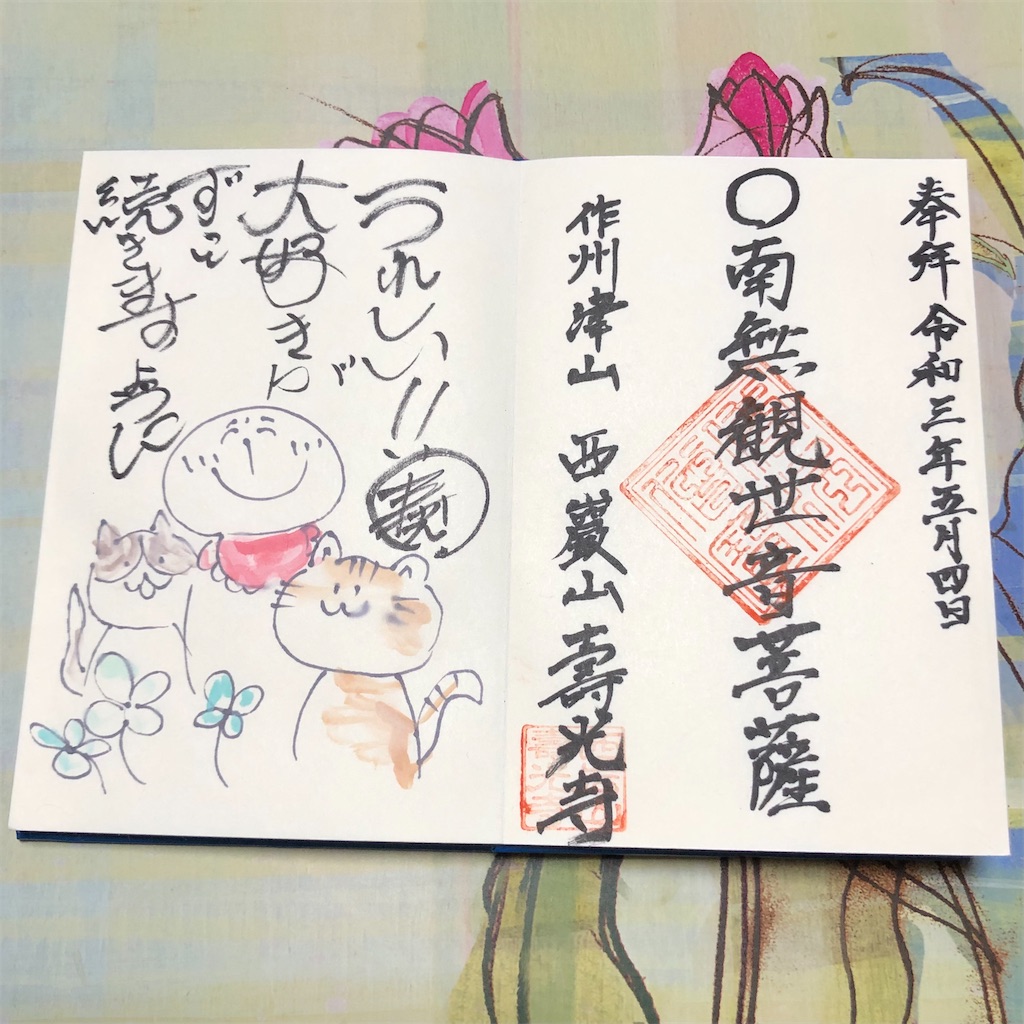 奉拝 令和三年五月四日
〇南無観世音菩薩
作州津山 西巌山 壽光寺
うれしい!!
大好きが
ずっと
続きます ように